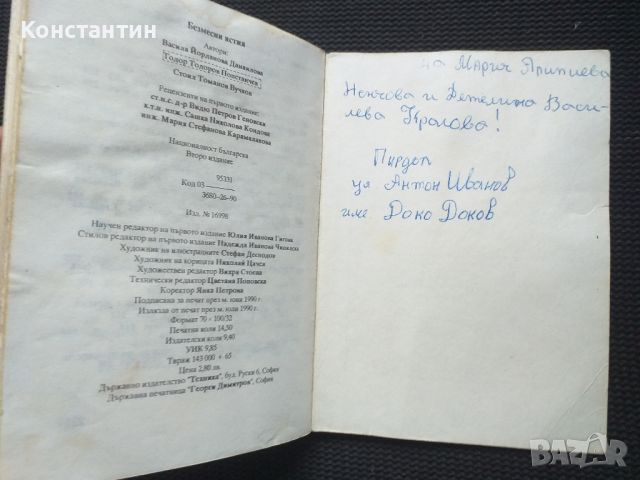 Константин
Безмесни ястия
Автори:
Василa Йорданова Данаилова
Тодор Тодоров Попстанчев
Стоил Томанов Вучков
Рецензенти на първото издание:
ст.н.с. д-р Видю Петров Геновски
к.т.н. инж. Сашка Николова Кондова
инж. Мария Стефанова Карамаланова
Националност българска
Второ издание
95331
Код 03
3680-26-90
Изд. № 16998
Научен редактор на първото издание Юлия Иванова
Стилов редактор на първото издание Надежда Иванова
Художник на илюстрациите Стефан Десподов
Художник на корицата Николай Цачев
Художествен редактор Вяра Стоева
Технически редактор Цветана Поповска
Коректор Янка Петрова
Подписана за печат през м. юни 1990 г.
Излязла от печат през м. юли 1990 г.
Формат 70 · 100/32
Печатни коли 14,50
Издателски коли 9,40
УИК 9,85
Тираж 143 000 + 65
Цена 2,80 лв.
Държавно издателство "Техника", бул. Руски 6, София
Държавна печатница "Георги Димитров", София
на Мария
и Детелина Васи-
лева Кролова!
Пирдоп
ул Антон Иванов
име Доко Доков
BAZAR